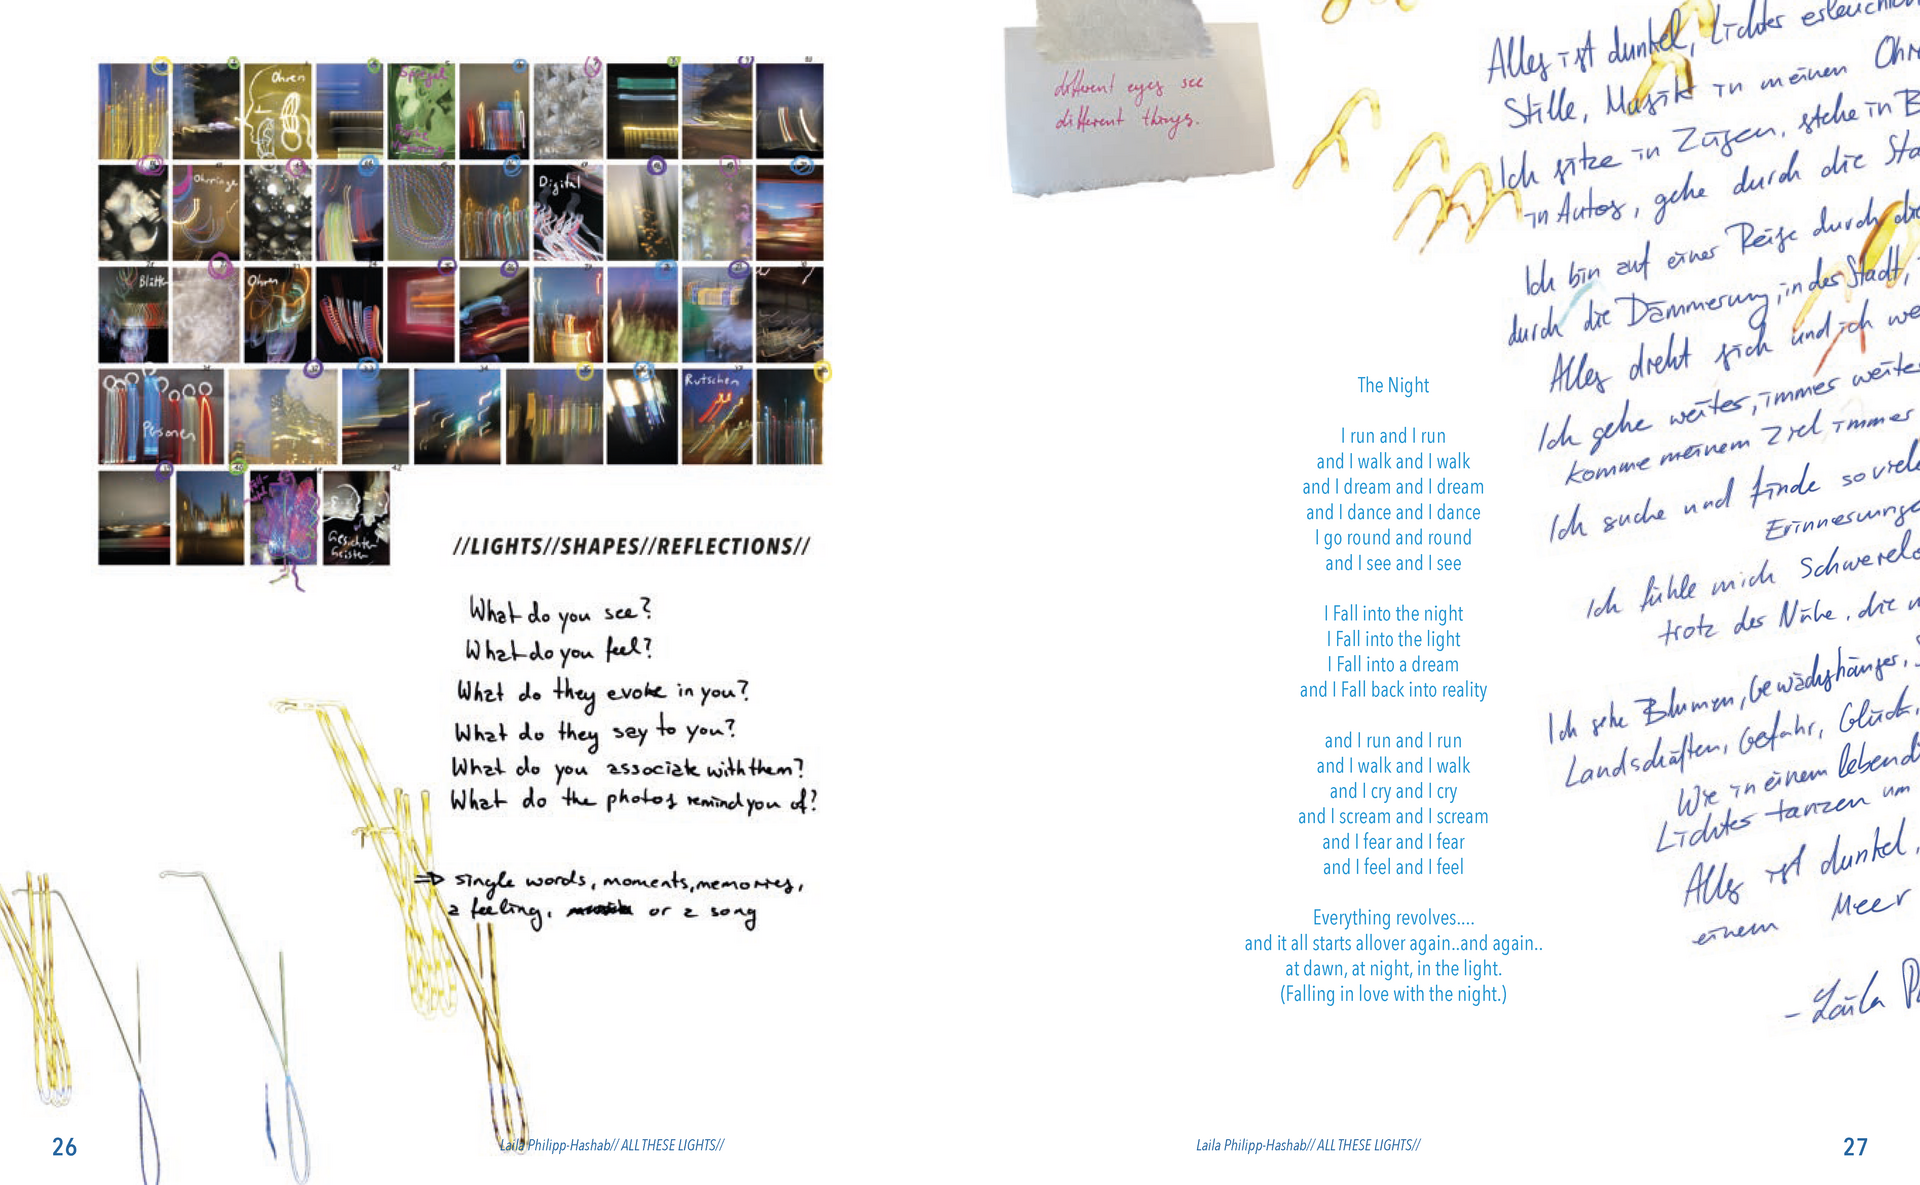 Ohren
Spiegel
Ohrringe
Digital
Blätter
Ohren
Personen
Rutschen
42
Gesichter
Geister
//LIGHTS//SHAPES//REFLECTIONS//
What do you see?
What do you feel?
What do they evoke in you?
What do they say to you?
What do you associate with them?
What do the photos remind you of?
⇒ single words, moments, memories,
a feeling, or a song
26
Laila Philipp-Hashab// ALL THESE LIGHTS//
different eyes see
different things.
The Night
I run and I run
and I walk and I walk
and I dream and I dream
and I dance and I dance
I go round and round
and I see and I see
I Fall into the night
I Fall into the light
I Fall into a dream
and I Fall back into reality
and I run and I run
and I walk and I walk
and I cry and I cry
and I scream and I scream
and I fear and I fear
and I feel and I feel
Everything revolves....
and it all starts allover again..and again..
at dawn, at night, in the light.
(Falling in love with the night.)
Alles ist dunkel, Lichter erleuchten
Stille, Musik in meinen Ohr
Ich sitze in Zügen, stehe in B
in Autos, gehe durch die Sta
Ich bin auf einer Reise durch die
durch die Dämmerung, in der Stadt,
Alles dreht sich und ich we
Ich gehe weiter, immer weiter
komme meinem Ziel immer
Ich suche und finde so viele
Erinnerunge
Ich fühle mich Schwerelo
trotz der Nähe, die m
Ich sehe Blumen, Gewächshäuser, S
Landschaften, Gefahr, Glück,
Wie in einem lebendi
Lichter tanzen um
Alles ist dunkel,
einem Meer
- Laila P
Laila Philipp-Hashab// ALL THESE LIGHTS//
27